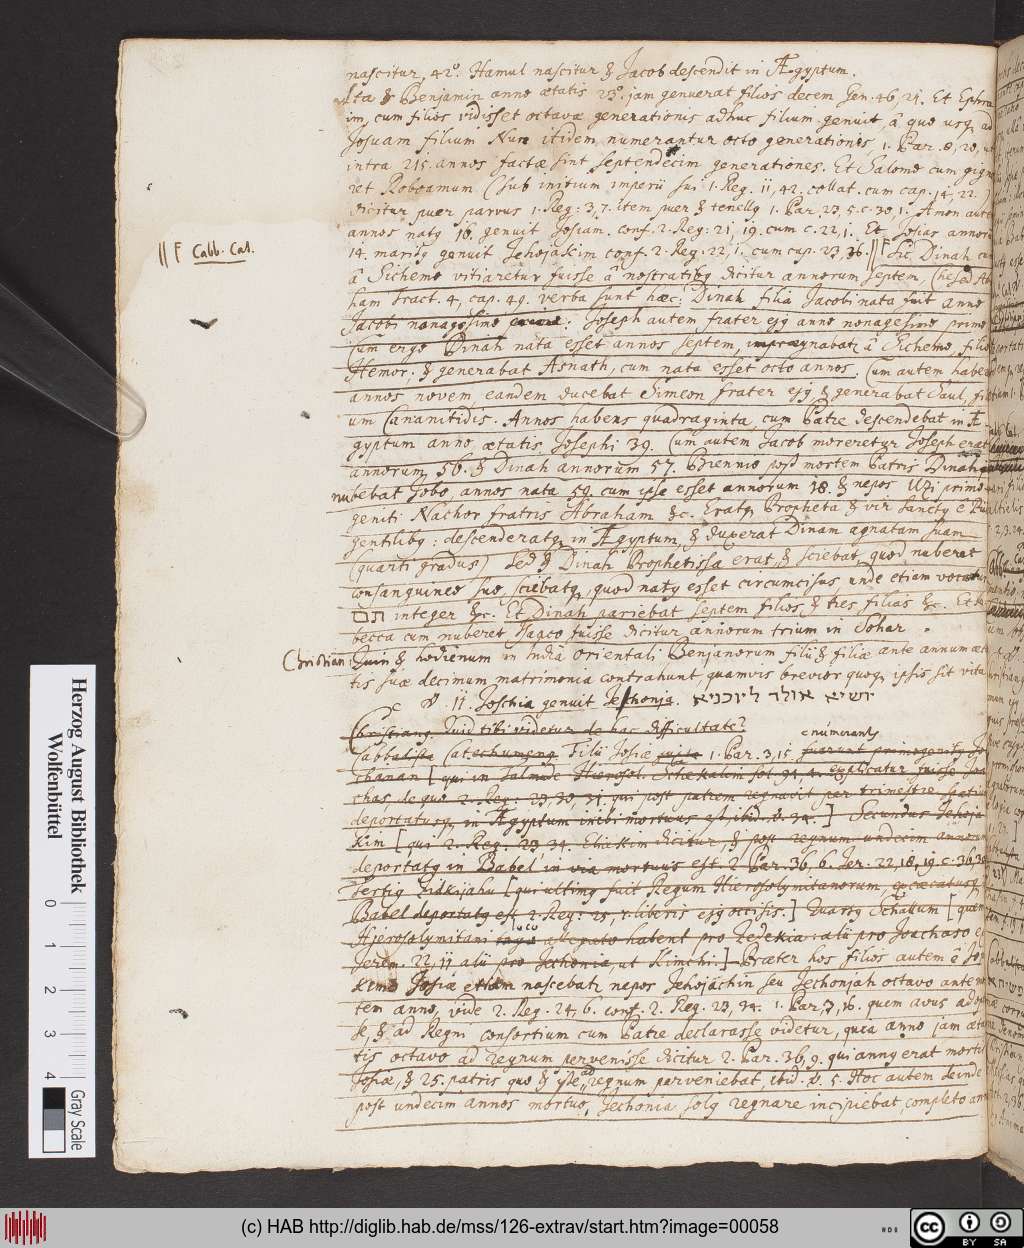 nascitur, 42°. Hamul nascitur & Jacob descendit in Ægyptum.
Ita & Benjamin anno ætatis 23° jam genuerat filios decem Gen. 46, 21. Et Ephra
im, cum filios vidisset octavæ generationis adhuc filium genuit, à quo usq ad
Josuam filium Nun itidem numerantur octo generationes, 1. Par. 8, 20, ut
intra 215. annos factæ sint septendecim generationes. Et Salomo cum gigne
ret Roboamum (sub initium imperii sui 1. Reg. 11, 42. collat. cum cap. 14, 22.
dicitur puer parvus 1. Reg: 3, 7. item puer & tenellq 1. Par. 23, 5. c. 30, 1. Amon autem
annos natq 16. genuit Josiam. conf. 2. Reg: 21, 19. cum c. 22, 1. Et Josias annorum
14. maritq genuit Jehojakim conf. 2. Reg. 22, 1. cum cap. 23, 36. || F Sic Dinah cum
|| F Cabb. Cat.
à Sichemo vitiaretur fuisse à nostratibq dicitur annorum septem (Chesed Abra
ham tract. 4, cap. 49. verba sunt hæc: Dinah filia Jacobi nata fuit anno
Jacobi nonagesimo : Joseph autem frater ejq anno nonagesimo primo
Cum ergo Dinah nata esset annos septem, imprægnabatr à Sichemo, filio
Hemor; & generabat Asnath, cum nata esset octo annos. Cum autem haberet
annos novem, eandem ducebat Simeon frater ejq & generabat Saul, fili
um Cananitidis. Annos habens quadraginta, cum Patre descendebat in Æ
gyptum anno ætatis Josephi 39. Cum autem Jacob moreretur Joseph erat
annorum 56. & Dinah annorum 57. Biennio post mortem Patris Dinah
nubebat Jobo, annos nata 59. cum ipse esset annorum 38. & nepos Uzi primo
geniti Nachor fratris Abraham &c. Eratq Propheta & vir sanctq è Piis
gentilibq: descenderatq in Ægyptum, & duxerat Dinam agnatam suam
(quarti gradus) Sed & Dinah Prophetissa erat, & sciebat, quod nuberet
consanguineo suo, sciebatq, quod natq esset circumcisus unde etiam vocatur
תם integer &c. Et Dinah pariebat septem filios, & tres filias &c. Et Re
becca cum nuberet Isaaco fuisse dicitur annorum trium in Sohar.
Christian: Quin & hodienum in India orientali Benjanorum filii & filiæ ante annum æta
tis suæ decimum matrimonia contrahunt, quamvis brevior quoq ipsis sit vita
c ℣. 11. Joschia genuit Jechonja. יושיא אולר ליוכניא
Christianq. Quid tibi videtur de hac difficultate?
Cabbalista Catechumenq. Filii Josiæ 1. Par. 3, 15. enumerantr primogenitq Jo
chanan [qui in Talmude Hierosol. Schekalim fol. explicatur fuisse Joa
chas, de quo 2. Reg: 23, 30, 31. qui post patrem regnavit per trimestre spatium
deportatusq in Ægyptum inibi mortuus est, ibid. ℣. 34.] Secundus Jehoja
kim [qui 2. Reg. 23, 34. Eliakim dicitur, & post regnum undecim annorum
deportatq in Babel in via mortuus est. 2. Par. 36, 6. Jer. 22, 18, 19. c. 36, 30
Tertiq Zidkijahu [qui ultimq fuit Regum Hierosolymitanorum, excæcatusq
Babel deportatq est 2. Reg: 25, 7. liberis ejq occisis.] Quartq Schallum [quem
Hierosolymitani loco habent pro Zedekia: alii pro Joachaso ex
Jerem. 22, 11 alii pro Jechonia, ut Kimchi.] Præter hos filios autem è Joja
kimo Josiæ etiam nascebatr nepos Jehojachin seu Jechonjah octavo ante mor
tem anno, vide 2. Reg. 24, 6. conf. 2. Reg. 23, 34. 1. Par, 3, 16. quem avus ad op
se, & ad Regni consortium cum Patre declarasse videtur, quia anno jam æta
tis octavo ad regnum pervenisse dicitur 2. Par. 36, 9. qui annq erat mortis
Josiæ, & 25. patris quo & ipse ad regnum perveniebat, ibid. ℣. 5. Hoc autem deinde
post undecim annos mortuo, Jechonia solq regnare incipiebat, completo anno
Herzog August Bibliothek
Wolfenbüttel
0 1 2 3 4
Gray Scale
(c) HAB http://diglib.hab.de/mss/126-extrav/start.htm?image=00058
WDB
cc BY SA